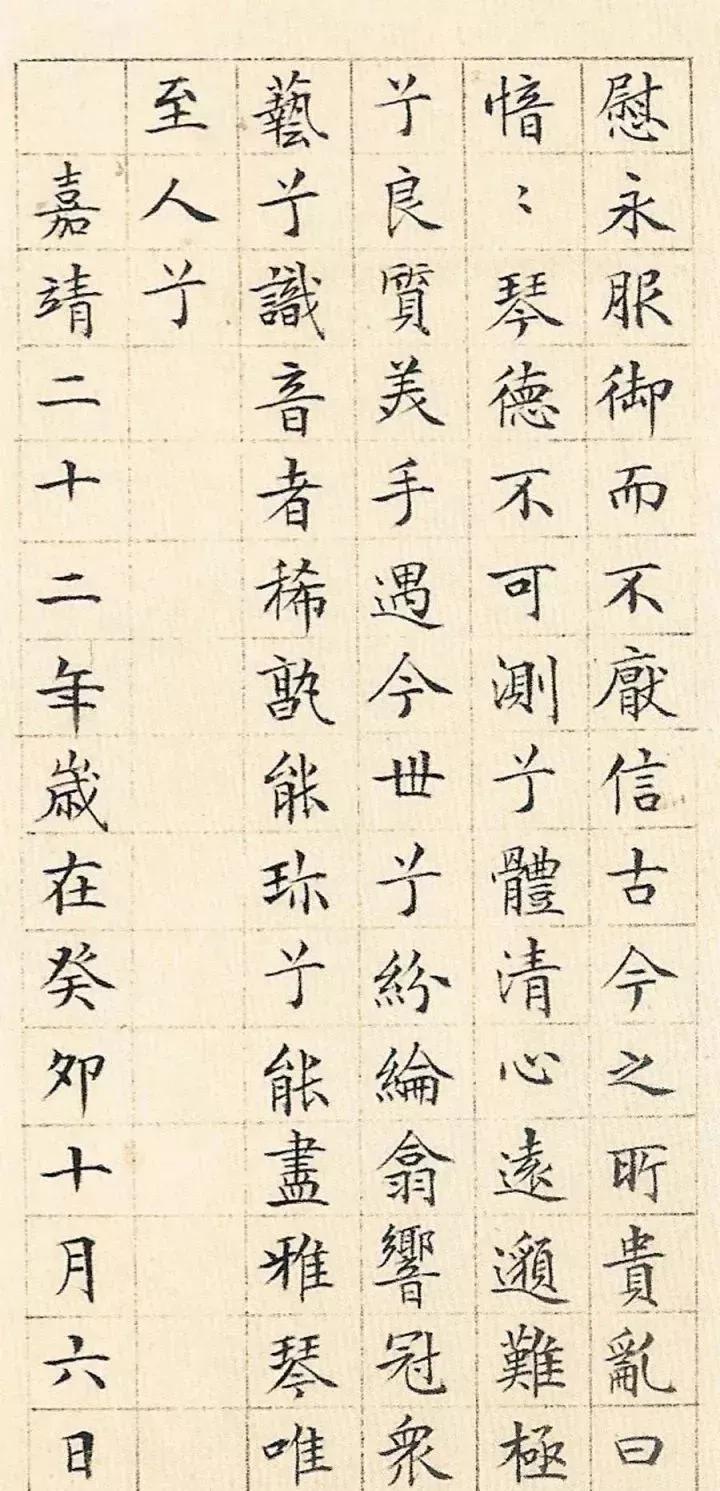 慰永服御而不厭信古今之所貴亂曰
愔〻琴徳不可測兮體清心遠邈難極
兮良質美手遇今世兮紛綸翕響冠衆
藝兮識音者稀孰能珎兮能盡雅琴唯
至人兮
嘉靖二十二年歲在癸卯十月六日